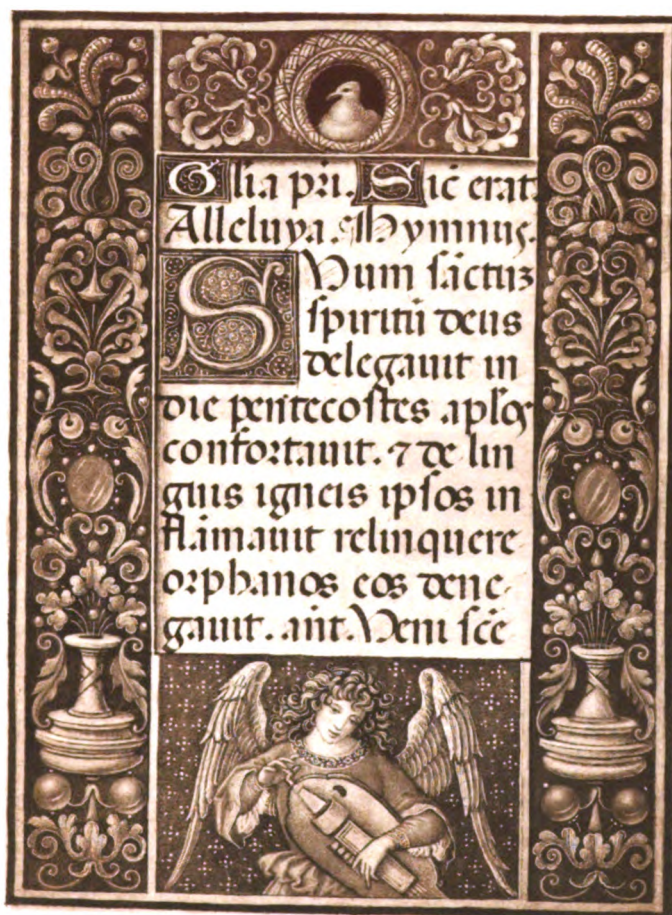 Glia pri. Sic erat.
Alleluya. Hymnus.
SUum sāctuz
spiritū deus
delegauit in
die pentecostes aplos
confortauit. ⁊ de lin
guis igneis ipsos in
flāmauit relinquere
orphanos eos dene-
gauit. ant. Veni scē